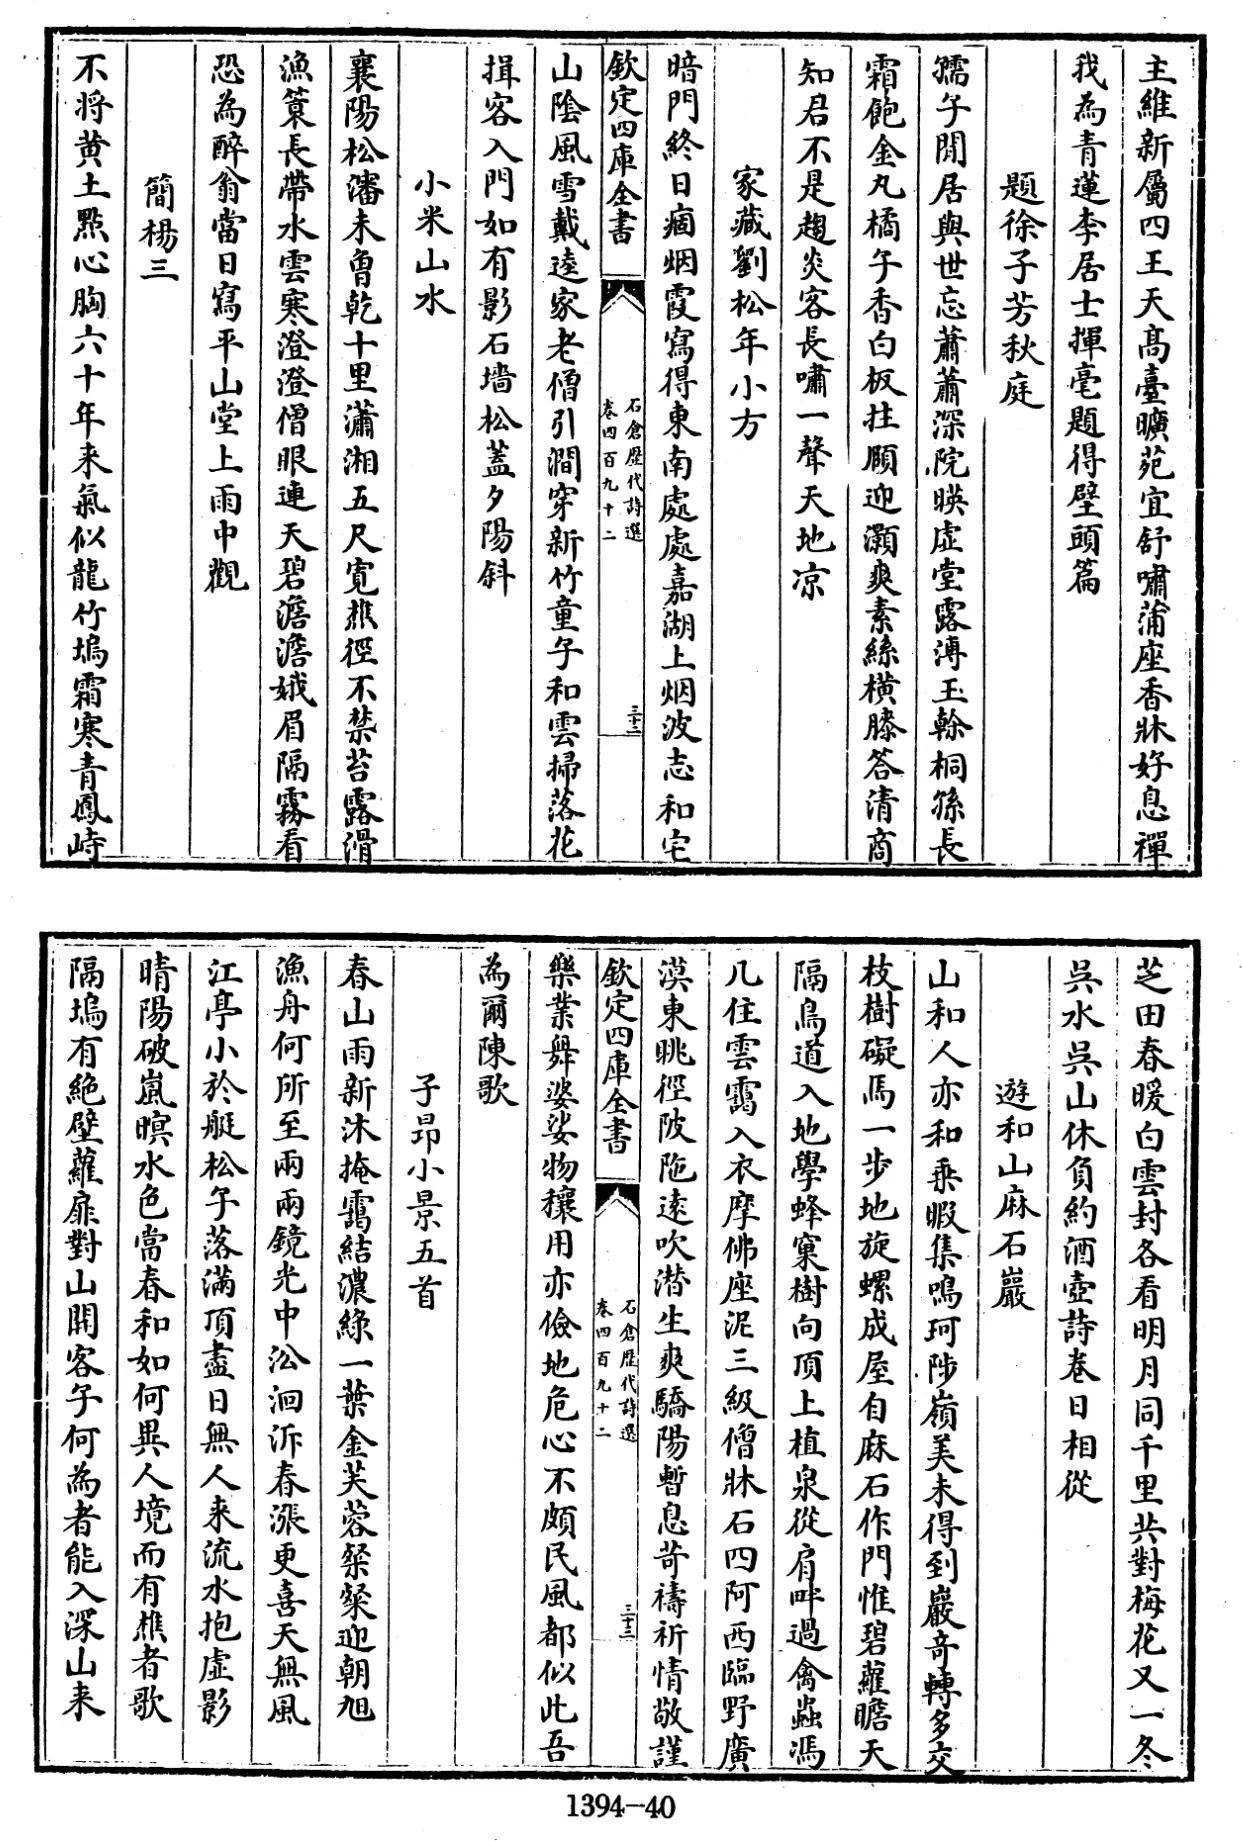 主維新屬四王天髙臺曠苑宜舒嘯蒲座香牀好息禪
我為青蓮李居士揮毫題得壁頭篇
題徐子芳秋庭
孺子閒居與世忘蕭蕭深院暎虛堂露漙玉榦桐孫長
霜飽金丸橘子香白板拄頤迎灝爽素絲横膝答清商
知君不是趨炎客長嘯一聲天地凉
家藏劉松年小方
暗門終日痼烟霞寫得東南處處嘉湖上烟波志和宅
欽定四庫全書
石倉歷代詩選
卷四百九十二
三十二
山隂風雪戴逵家老僧引澗穿新竹童子和雲掃落花
揖客入門如有影石墙松蓋夕陽斜
小米山水
襄陽松瀋未曾乾十里瀟湘五尺寛樵徑不禁苔露滑
漁簑長帶水雲寒澄澄僧眼連天碧澹澹娥眉隔霧看
恐為醉翁當日寫平山堂上雨中觀
簡楊三
不將黄土㸃心胸六十年来氣似龍竹塢霜寒青鳳峙
芝田春暖白雲封各看明月同千里共對梅花又一冬
吳水吳山休負約酒壺詩卷日相從
遊和山麻石巖
山和人亦和乗暇集鳴珂陟嶺美未得到巖竒轉多交
枝樹礙馬一步地旋螺成屋自麻石作門惟碧蘿瞻天
隔鳥道入地學蜂窠樹向頂上植泉從肩畔過禽蟲馮
几住雲靄入衣摩佛座泥三級僧牀石四阿西臨野廣
漠東眺徑陂陁逺吹潛生爽驕陽暫息苛禱祈情敬謹
欽定四庫全書
石倉歷代詩選
卷四百九十二
三十三
樂業舞婆娑物穰用亦儉地危心不頗民風都似此吾
為爾陳歌
子昻小景五首
春山雨新沐掩靄結濃綠一葉金芙蓉粲粲迎朝旭
漁舟何所至兩兩鏡光中㳂洄泝春漲更喜天無風
江亭小於艇松子落滿頂盡日無人来流水抱虛影
晴陽破嵐暝水色當春和如何異人境而有樵者歌
隔塢有絶壁蘿扉對山開客子何為者能入深山来
1394-40